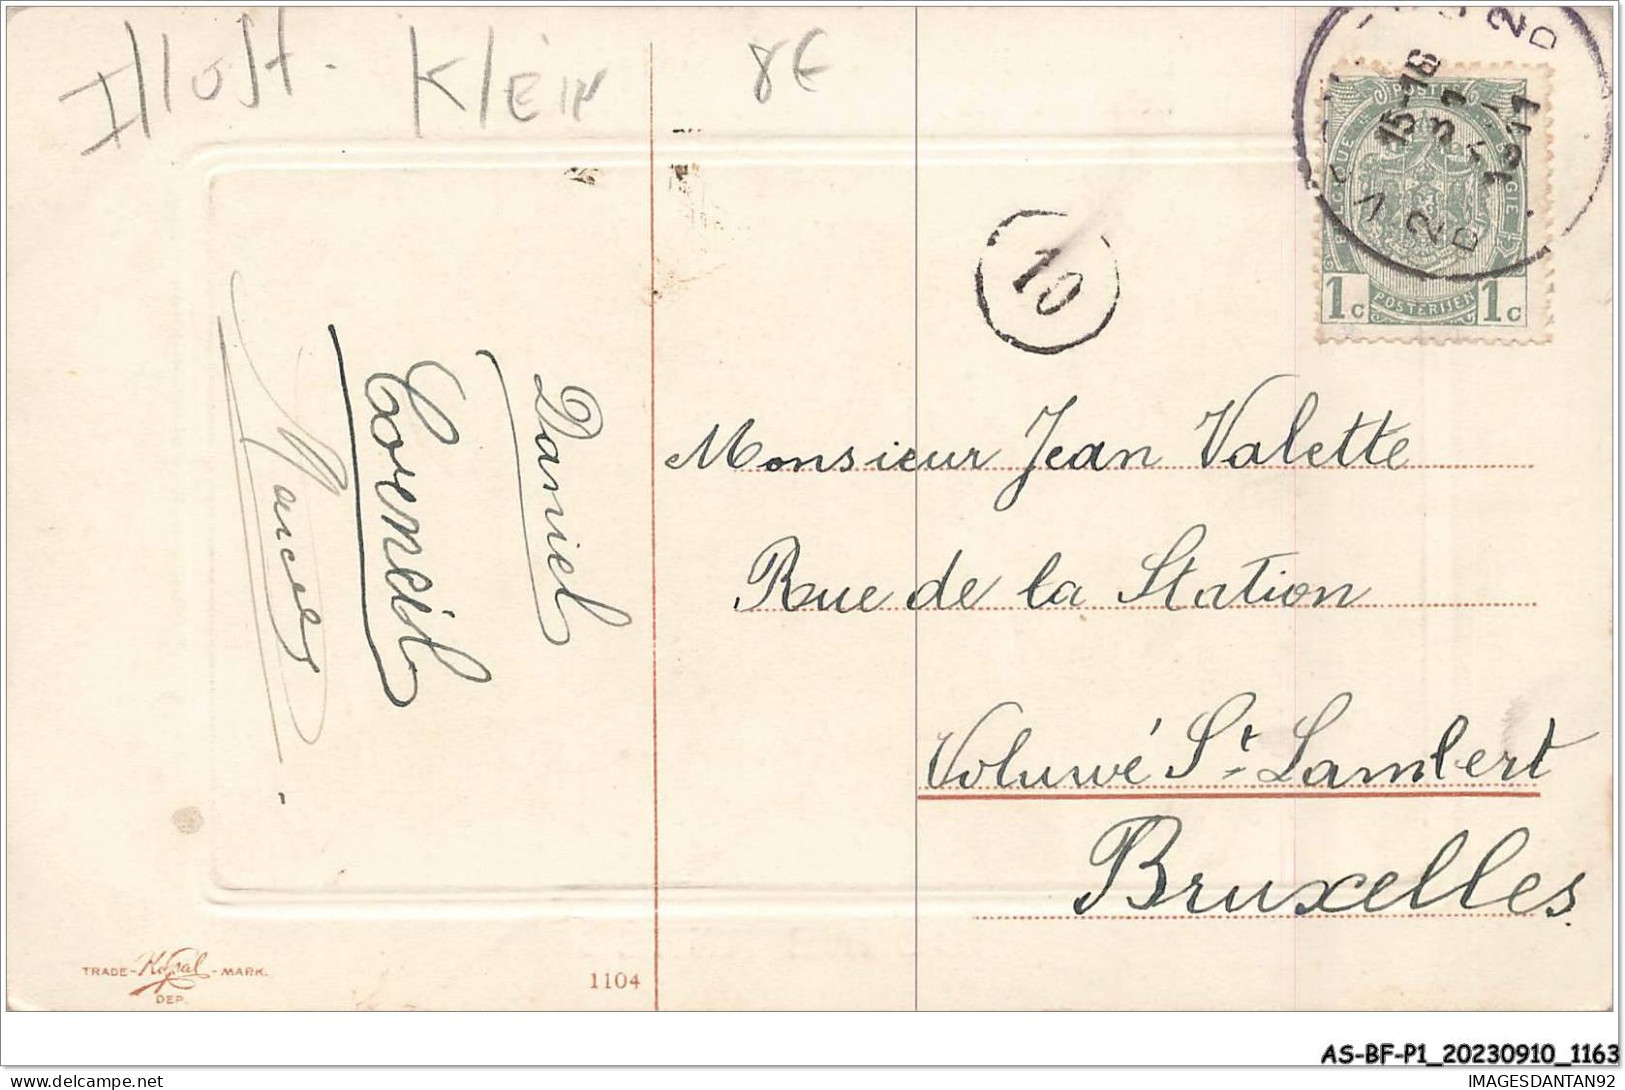 Illust. Klein 8€
15-16
31
1911
2
D
2
D
POSTES
BELGIQUE
BELGIE
1c POSTERIJEN 1c
10
Daniel
Corneil
Marcel
Monsieur Jean Valette
Rue de la Station
Voluwé St. Lambert
Bruxelles
TRADE - Kopal - MARK.
DEP.
1104
AS-BF-P1_20230910_1163
IMAGESDANTAN92